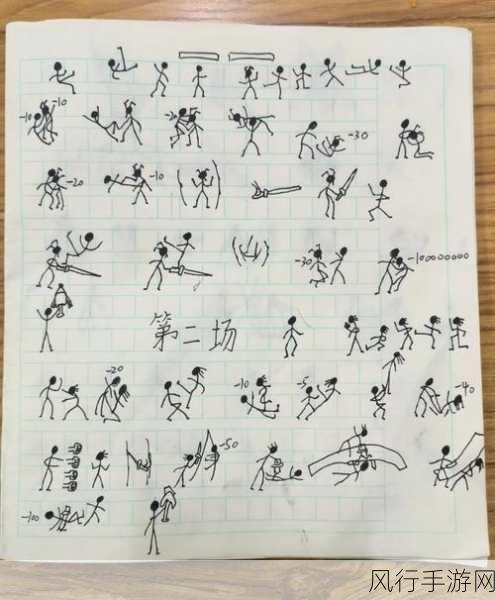 -10 -10 -20 -30
-20 -10
-30 -100000000
第二场
-20 -10 -5 -40
-50
-100
风行手游网